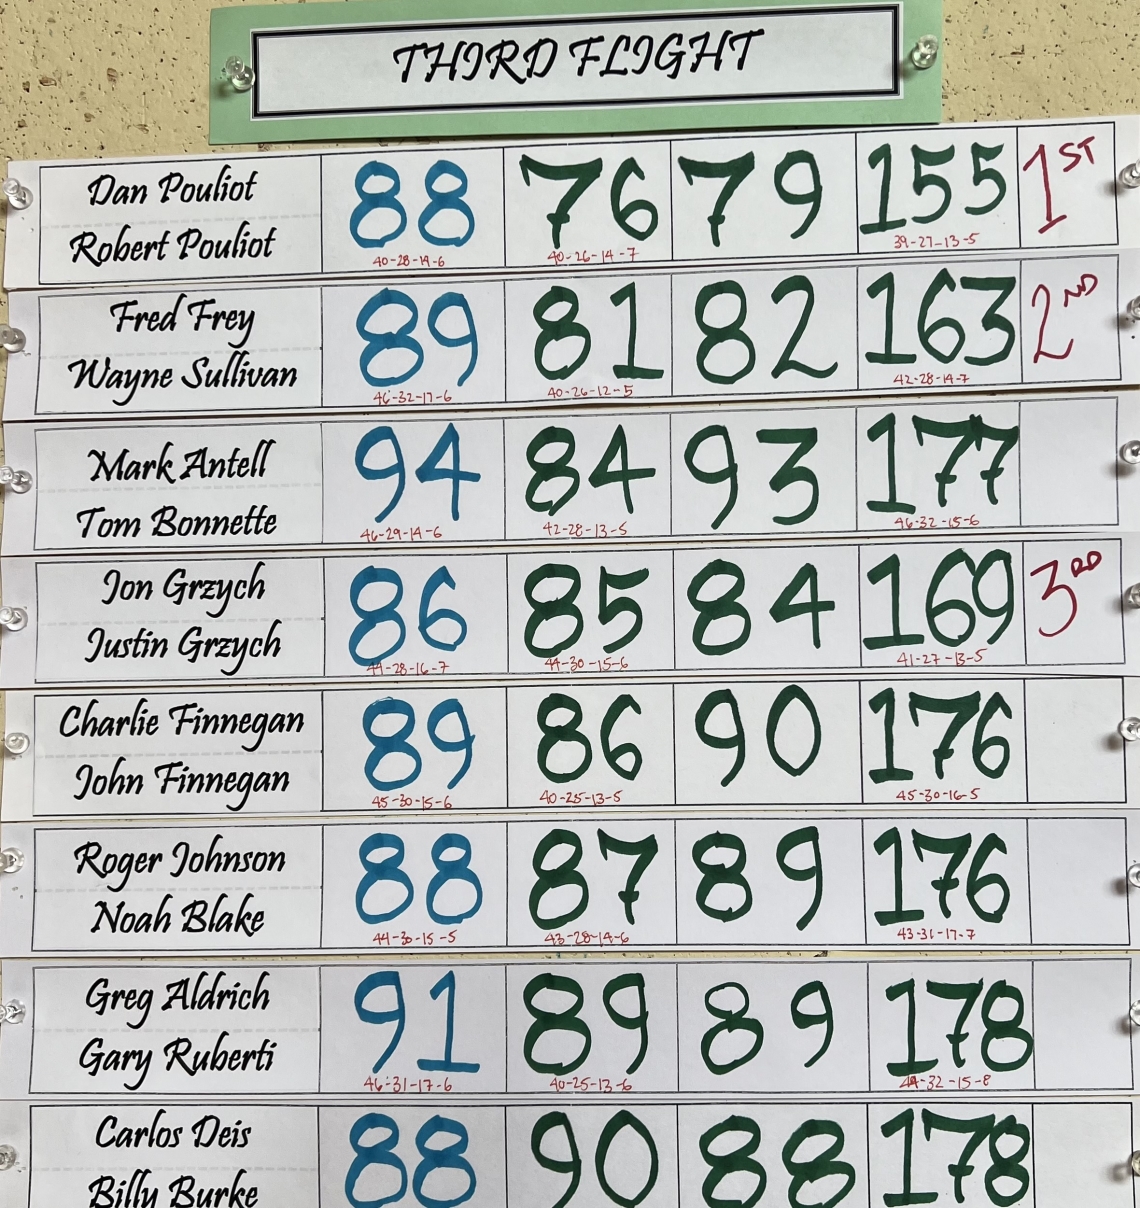 THIRD FLIGHT
Dan Pouliot
Robert Pouliot
88 76 79 155 1ST
40-28-14-6 40-26-14-7 39-27-13-5
Fred Frey
Wayne Sullivan
89 81 82 163 2ND
46-32-17-6 40-26-12-5 42-28-14-7
Mark Antell
Tom Bonnette
94 84 93 177
46-29-14-6 42-28-13-5 46-32-15-6
Jon Grzych
Justin Grzych
86 85 84 169 3RD
44-28-16-7 44-30-15-6 41-27-13-5
Charlie Finnegan
John Finnegan
89 86 90 176
45-30-15-6 40-25-13-5 45-30-16-5
Roger Johnson
Noah Blake
88 87 89 176
44-30-15-5 43-28-14-6 43-31-17-7
Greg Aldrich
Gary Ruberti
91 89 89 178
46-31-17-6 40-25-13-6 44-32-15-8
Carlos Deis
Billy Burke
88 90 88 178